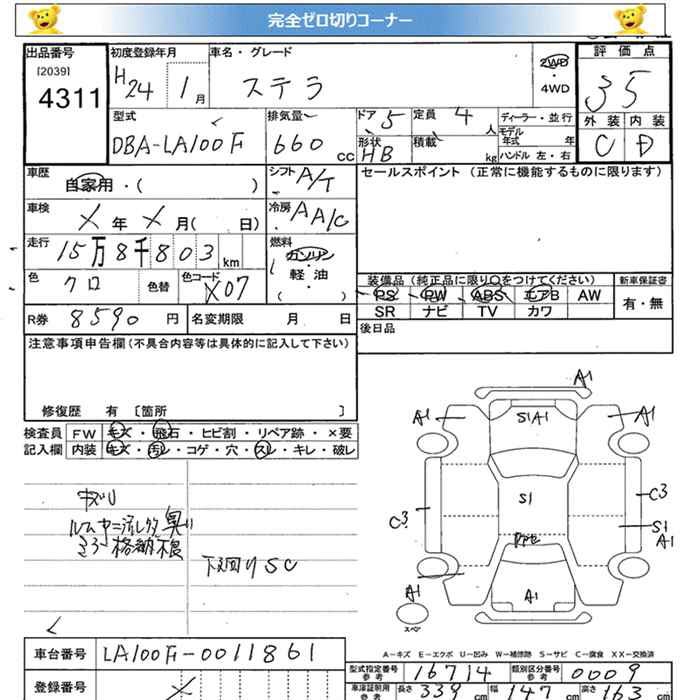 完全ゼロ切りコーナー
出品番号
[2039]
4311
初度登録年月
H24 1月
車名・グレード
ステラ
2WD
・
4WD
評価点
35
外装 内装
C D
型式
DBA-LA100F
排気量
660 cc
ドア 5
定員 4人
形状 HB
積載 kg
ディーラー・並行
モデル年式 年
ハンドル 左・右
車歴
自家用・( )
シフト A/T
セールスポイント (正常に機能するものに限ります)
車検
X年X月( 日)
冷房 AA/C
走行
15万8千803km
燃料
ガソリン
軽・油
( )
色
クロ
色替
色コード
X07
装備品 (純正品に限り○をつけてください)
新車保証書
PS PW ABS エアB AW
SR ナビ TV カワ
有・無
R券 8590円
名変期限 月 日
後日品
注意事項申告欄(不具合内容等は具体的に記入して下さい)
修復歴 有 〔箇所 〕
検査員
記入欄
FW キズ・飛石・ヒビ割・リペア跡・×要
内装 キズ・汚レ・コゲ・穴・スレ・キレ・破レ
格納不良
下廻りSC
A1
A1 S1A1 A1
C3 S1 C3
S1
A1
A1 A1
スペア
A-キズ E-エクボ U-凹み W-補修跡 S-サビ C-腐食 XX-交換済
車台番号 LA100F-0011861
登録番号
型式指定番号 参考 16714
類別区分番号 参考 0009
車庫証明用 参考 長さ 339cm 幅 147cm 高さ 163cm